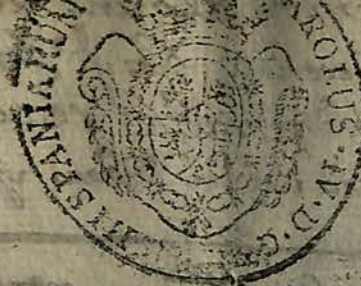 CAROLUS·IV·D·G·HISPANIARUM